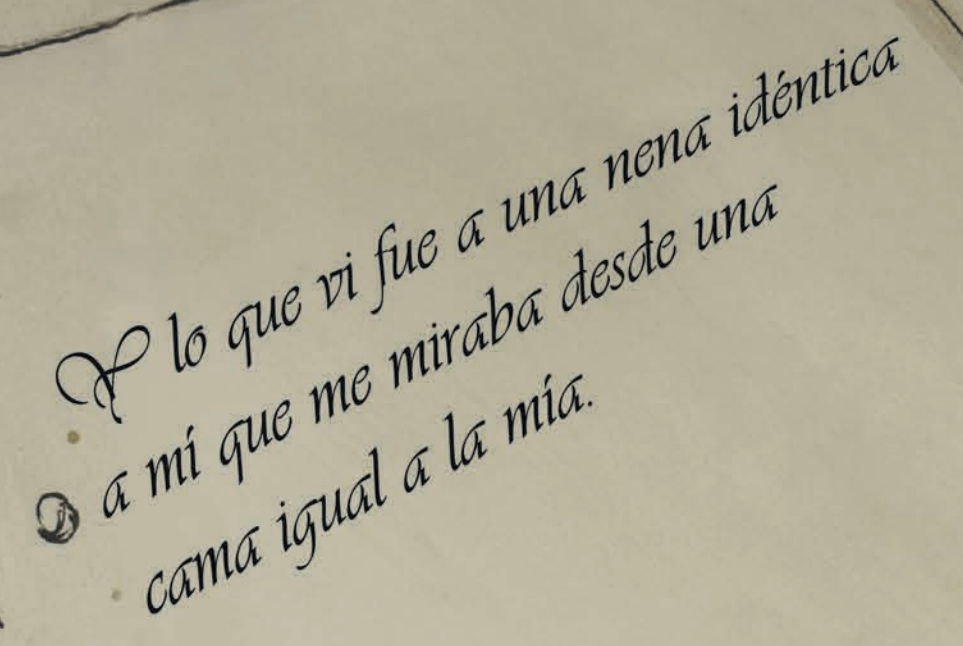 Y lo que vi fue a una nena idéntica
a mí que me miraba desde una
cama igual a la mía.